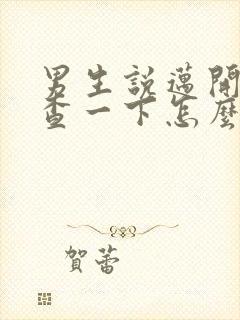 男生說邁開
查一下怎麼
賀蕾